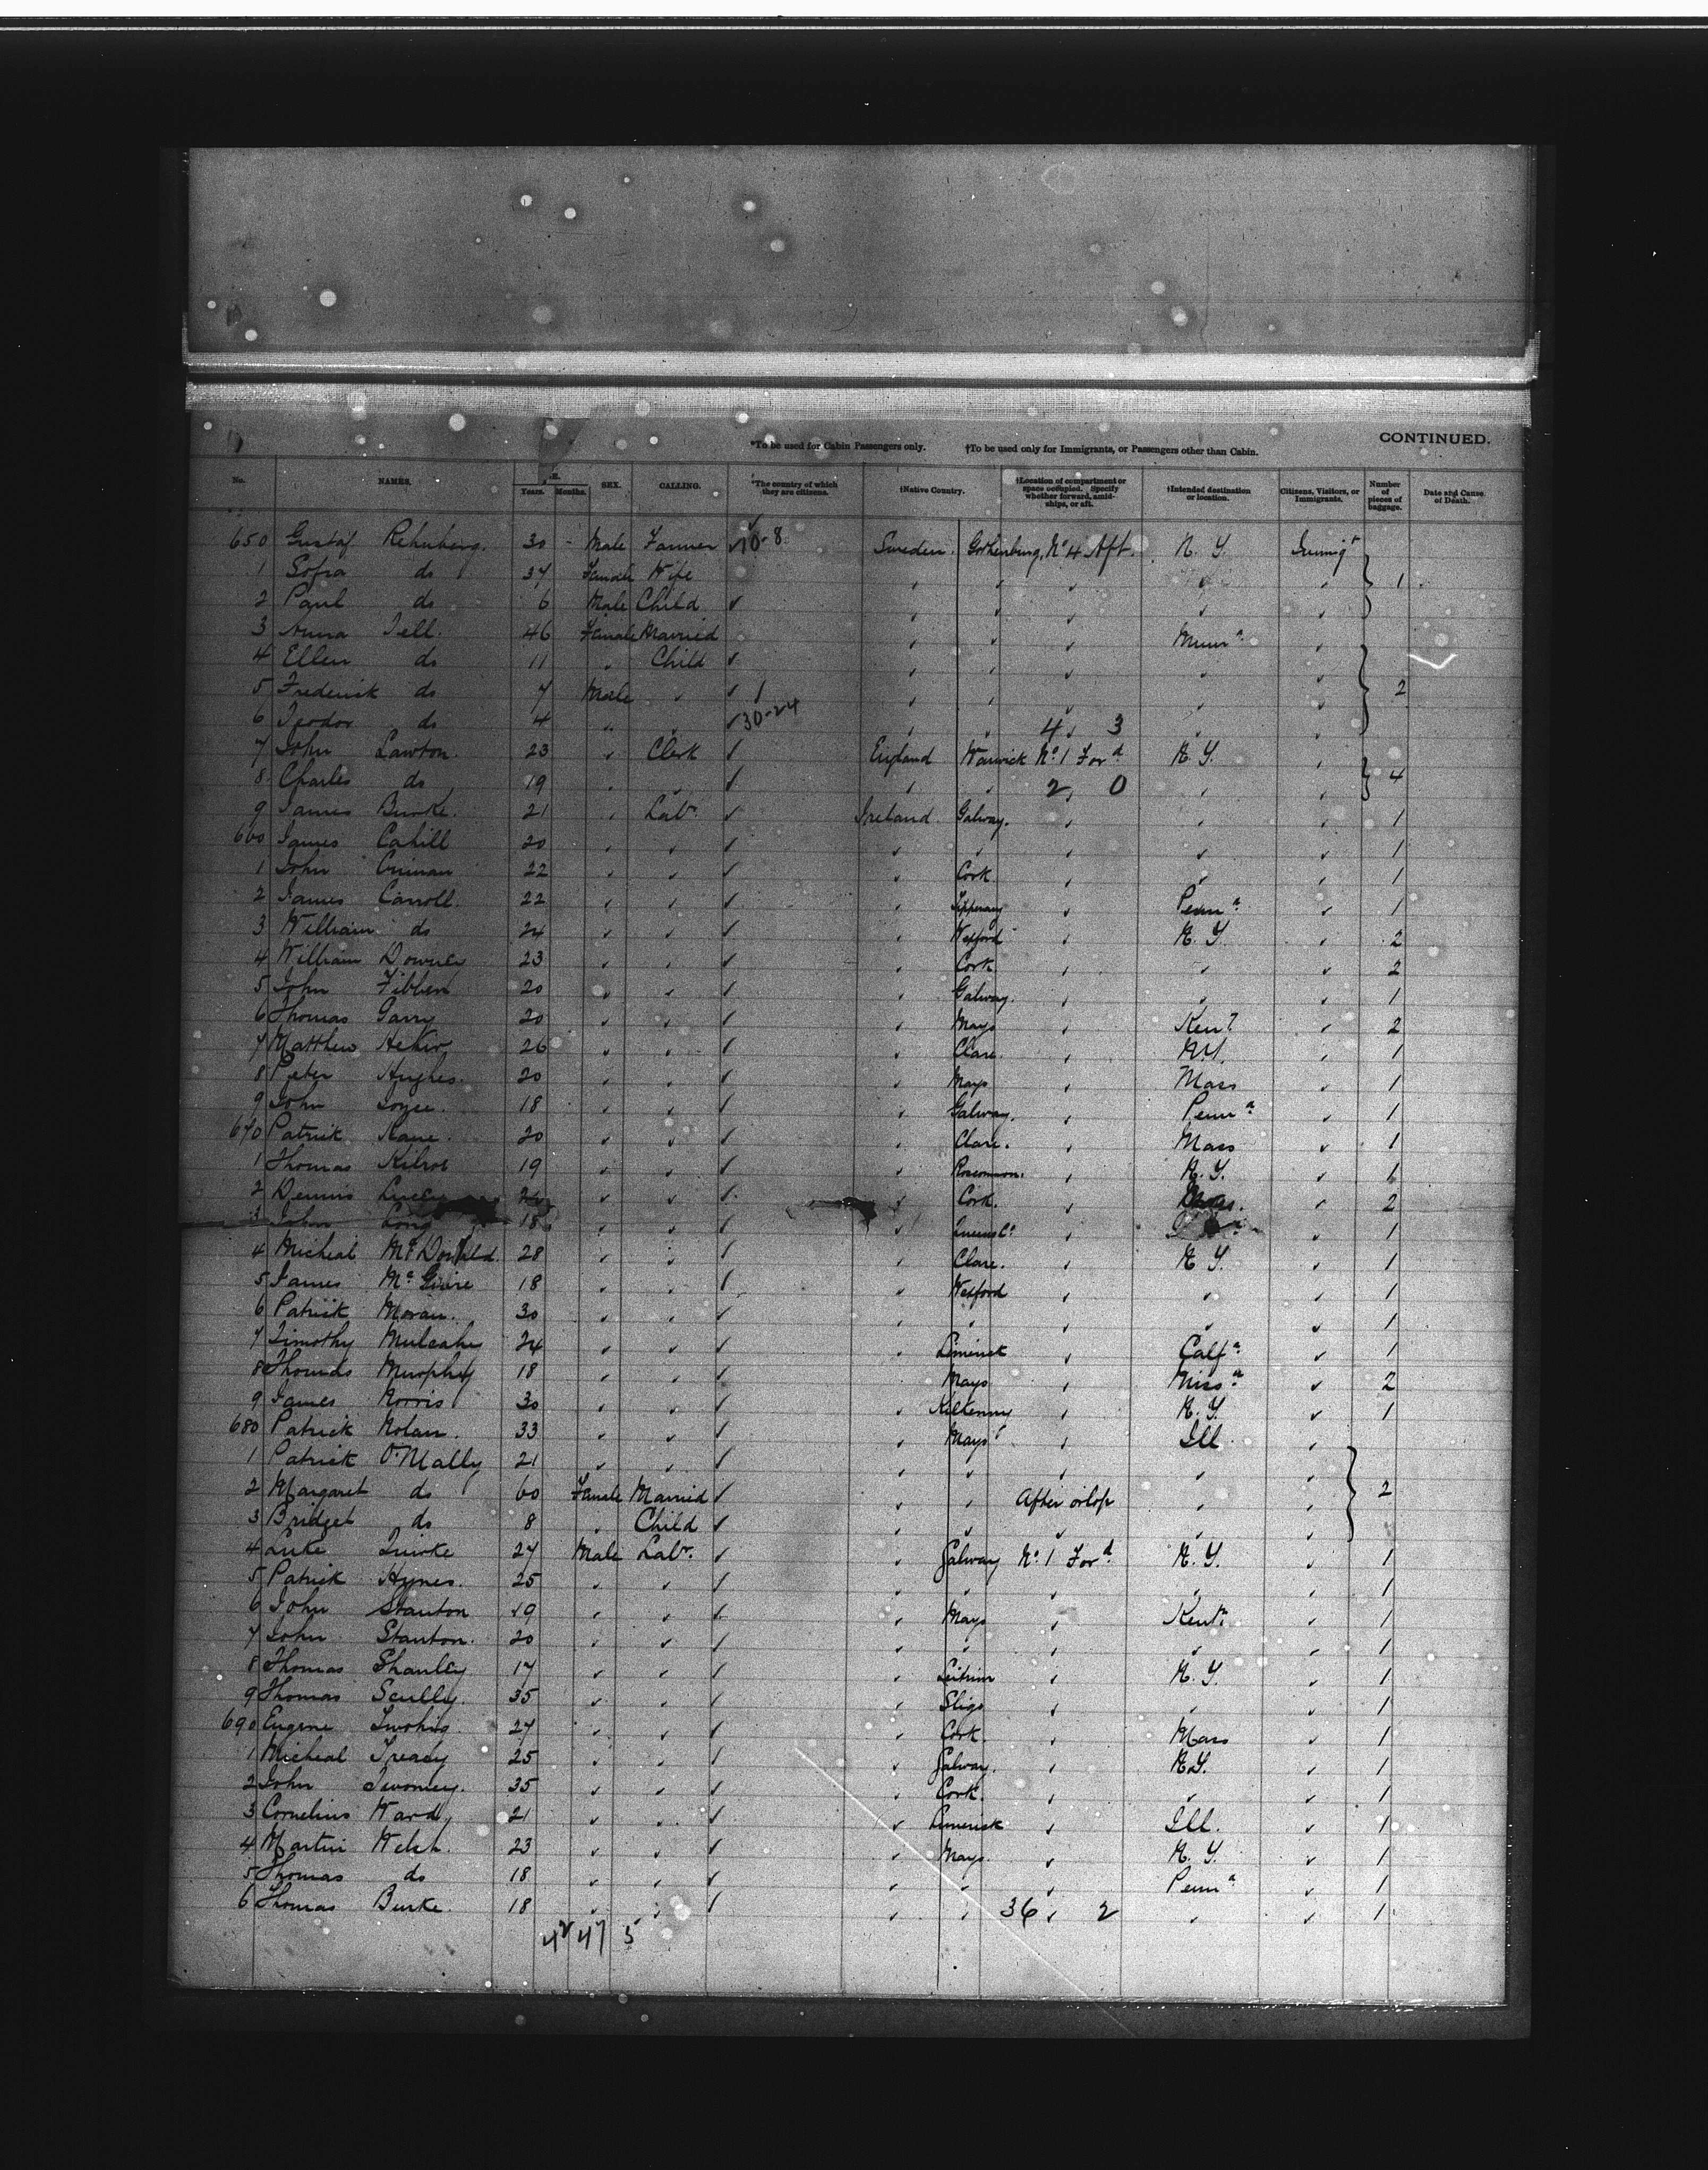 CONTINUED.
*To be used for Cabin Passengers only. †To be used only for Immigrants, or Passengers other than Cabin.
No. NAMES. Years. Months. SEX. CALLING. *The country of which they are citizens. †Native Country. †Location of compartment or space occupied. Specify whether forward, amidships, or aft. †Intended destination or location. Citizens, Visitors, or Immigrants. Number of pieces of baggage. Date and Cause of Death.
650 Gustaf 30 Male Farmer 10-8 Sweden. Gothenburg, No 4 Aft. N. Y. Immigt
1 Sofia do 37 Female Wife 1
2 Paul do 6 Male Child
3 Anna Tell. 46 Female Married Minna
4 Ellen do 11 Child
5 Frederick do 7 Male 1 2
6 Teodor do 4 30-24 4 3
7 John Lawton. 23 Clerk England Warwick No 1 Ford N. Y.
8 Charles do 19 2 0 4
9 James Burke. 21 Labr Ireland Galway. 1
660 James Cahill 20 1
1 John 22 Cork. 1
2 James Carroll. 22 Tipperary Penna 1
3 William do 24 Wexford N. Y. 2
4 William 23 Cork. 2
5 John Fibben 20 Galway. 1
6 Thomas Garry 20 Mayo 2
7 Matthew 26 Clare. N.Y. 1
8 Peter Hughes. 20 Mayo Mass 1
9 John Joyce. 18 Galway. Penna 1
670 Patrick Kane. 20 Clare. Mass 1
1 Thomas Kilroe 19 Roscommon. N. Y. 1
2 Dennis Lucey Cork. Mass. 2
3 John Long 18 Queens Co 1
4 Micheal McDonald. 28 Clare. N. Y. 1
5 James McGuire 18 Wexford 1
6 Patrick Moran. 30 1
7 Timothy Mulcahy 24 Limerick Calfa 1
8 Thomas Murphy 18 Mayo 2
9 James Norris 30 Kilkenny N. Y. 1
680 Patrick Nolan. 33 Mayo Ill
1 Patrick O'Mally 21
2 Margaret do 60 Female Married After orlop 2
3 Bridget do 8 Child
4 Luke 27 Male Labr. Galway No 1 Ford N. Y. 1
5 Patrick Hynes. 25 1
6 John Stanton 19 Mayo 1
7 John Stanton. 20 1
8 Thomas Shanley 17 Leitrim N. Y. 1
9 Thomas Scully. 35 Sligo 1
690 Eugene Twohig. 27 Cork. Mass 1
1 Micheal Treacy 25 Galway. N.Y. 1
2 John Twomey. 35 Cork. 1
3 Cornelius Ward 21 Limerick Ill. 1
4 Martin Welsh. 23 Mayo. N. Y. 1
5 Thomas do 18 Penna 1
6 Thomas Burke. 18 36 2 1
42 47 5